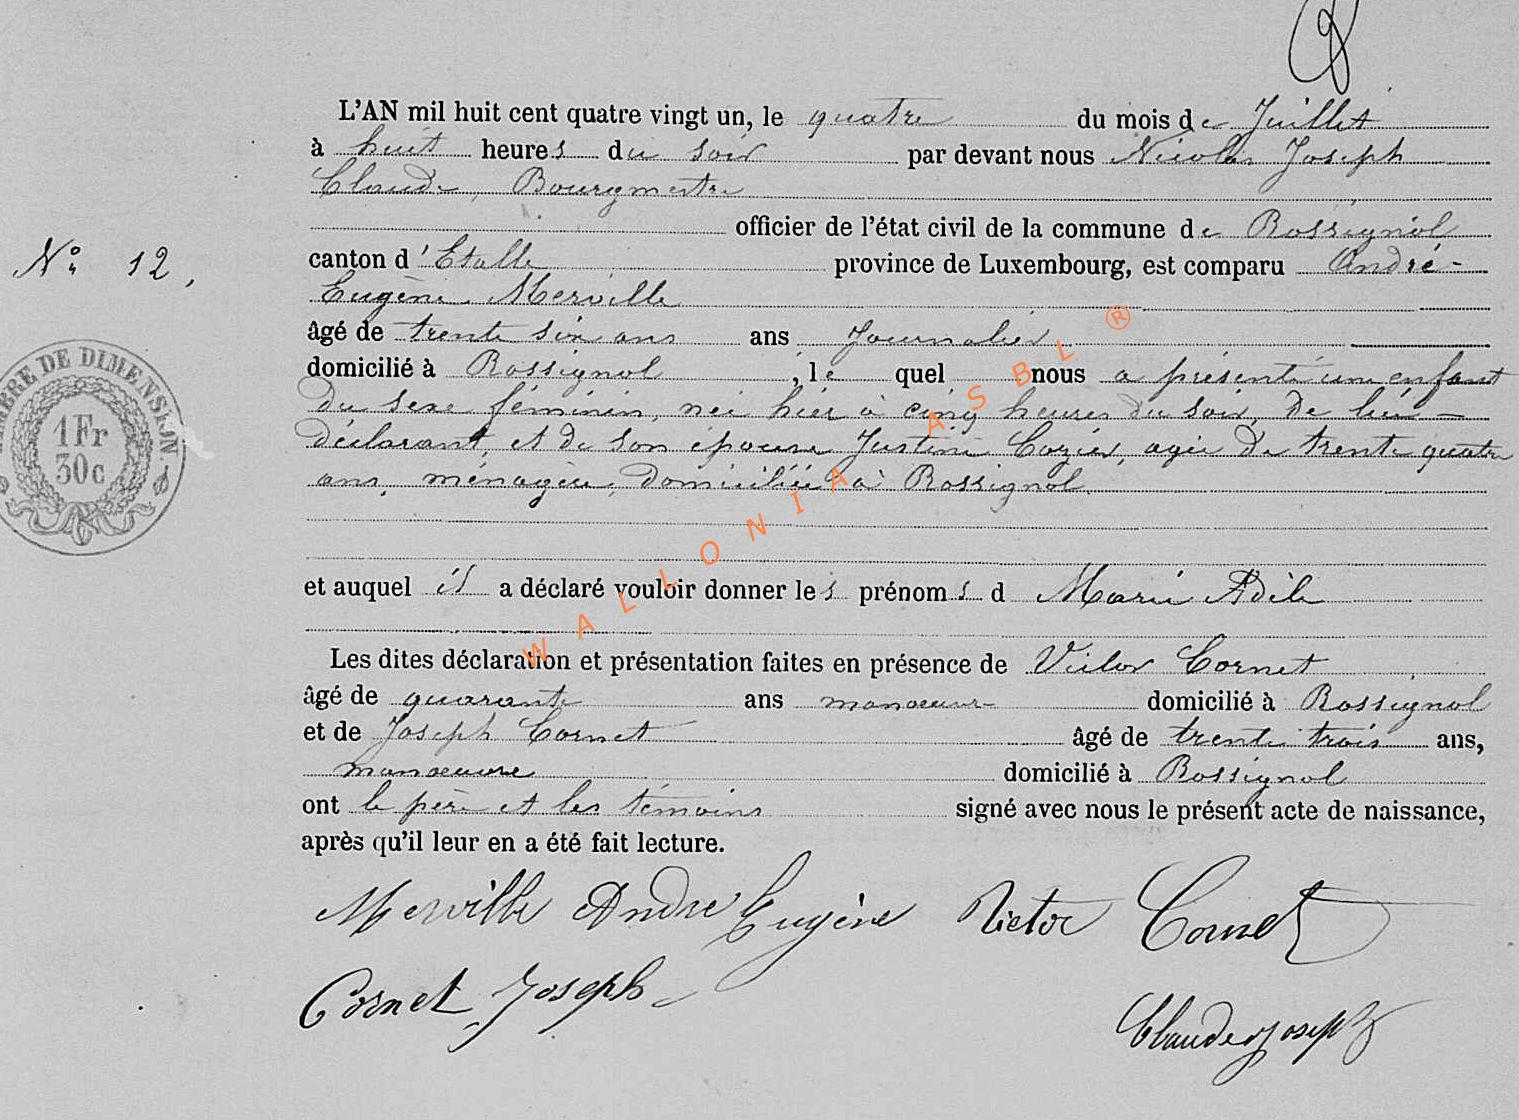 L'AN mil huit cent quatre vingt un, le quatre du mois de Juillet
à huit heures du soir par devant nous Nicolas Joseph
Claude, Bourgmestre
officier de l'état civil de la commune de Rossignol
N° 12,
canton d'Etalle province de Luxembourg, est comparu André-
Eugène Merville
âgé de trente six ans ans Journalier
domicilié à Rossignol, le quel nous a présenté un enfant
du sexe féminin, née hier à cinq heures du soir, de lui
déclarant, et de son épouse Justine Cozier, agée de trente quatre
ans, ménagère, domiciliée à Rossignol.
TIMBRE DE DIMENSION
1 Fr
30c
et auquel il a déclaré vouloir donner les prénoms d Marie Adèle
Les dites déclaration et présentation faites en présence de Victor Cornet
âgé de quarante ans manoeuvre domicilié à Rossignol
et de Joseph Cornet âgé de trente trois ans,
manoeuvre domicilié à Rossignol
ont le père et les témoins signé avec nous le présent acte de naissance,
après qu'il leur en a été fait lecture.
Merville André Eugène Victor Cornet
Cornet Joseph
Claude Joseph
WALLONIA ASBL ®